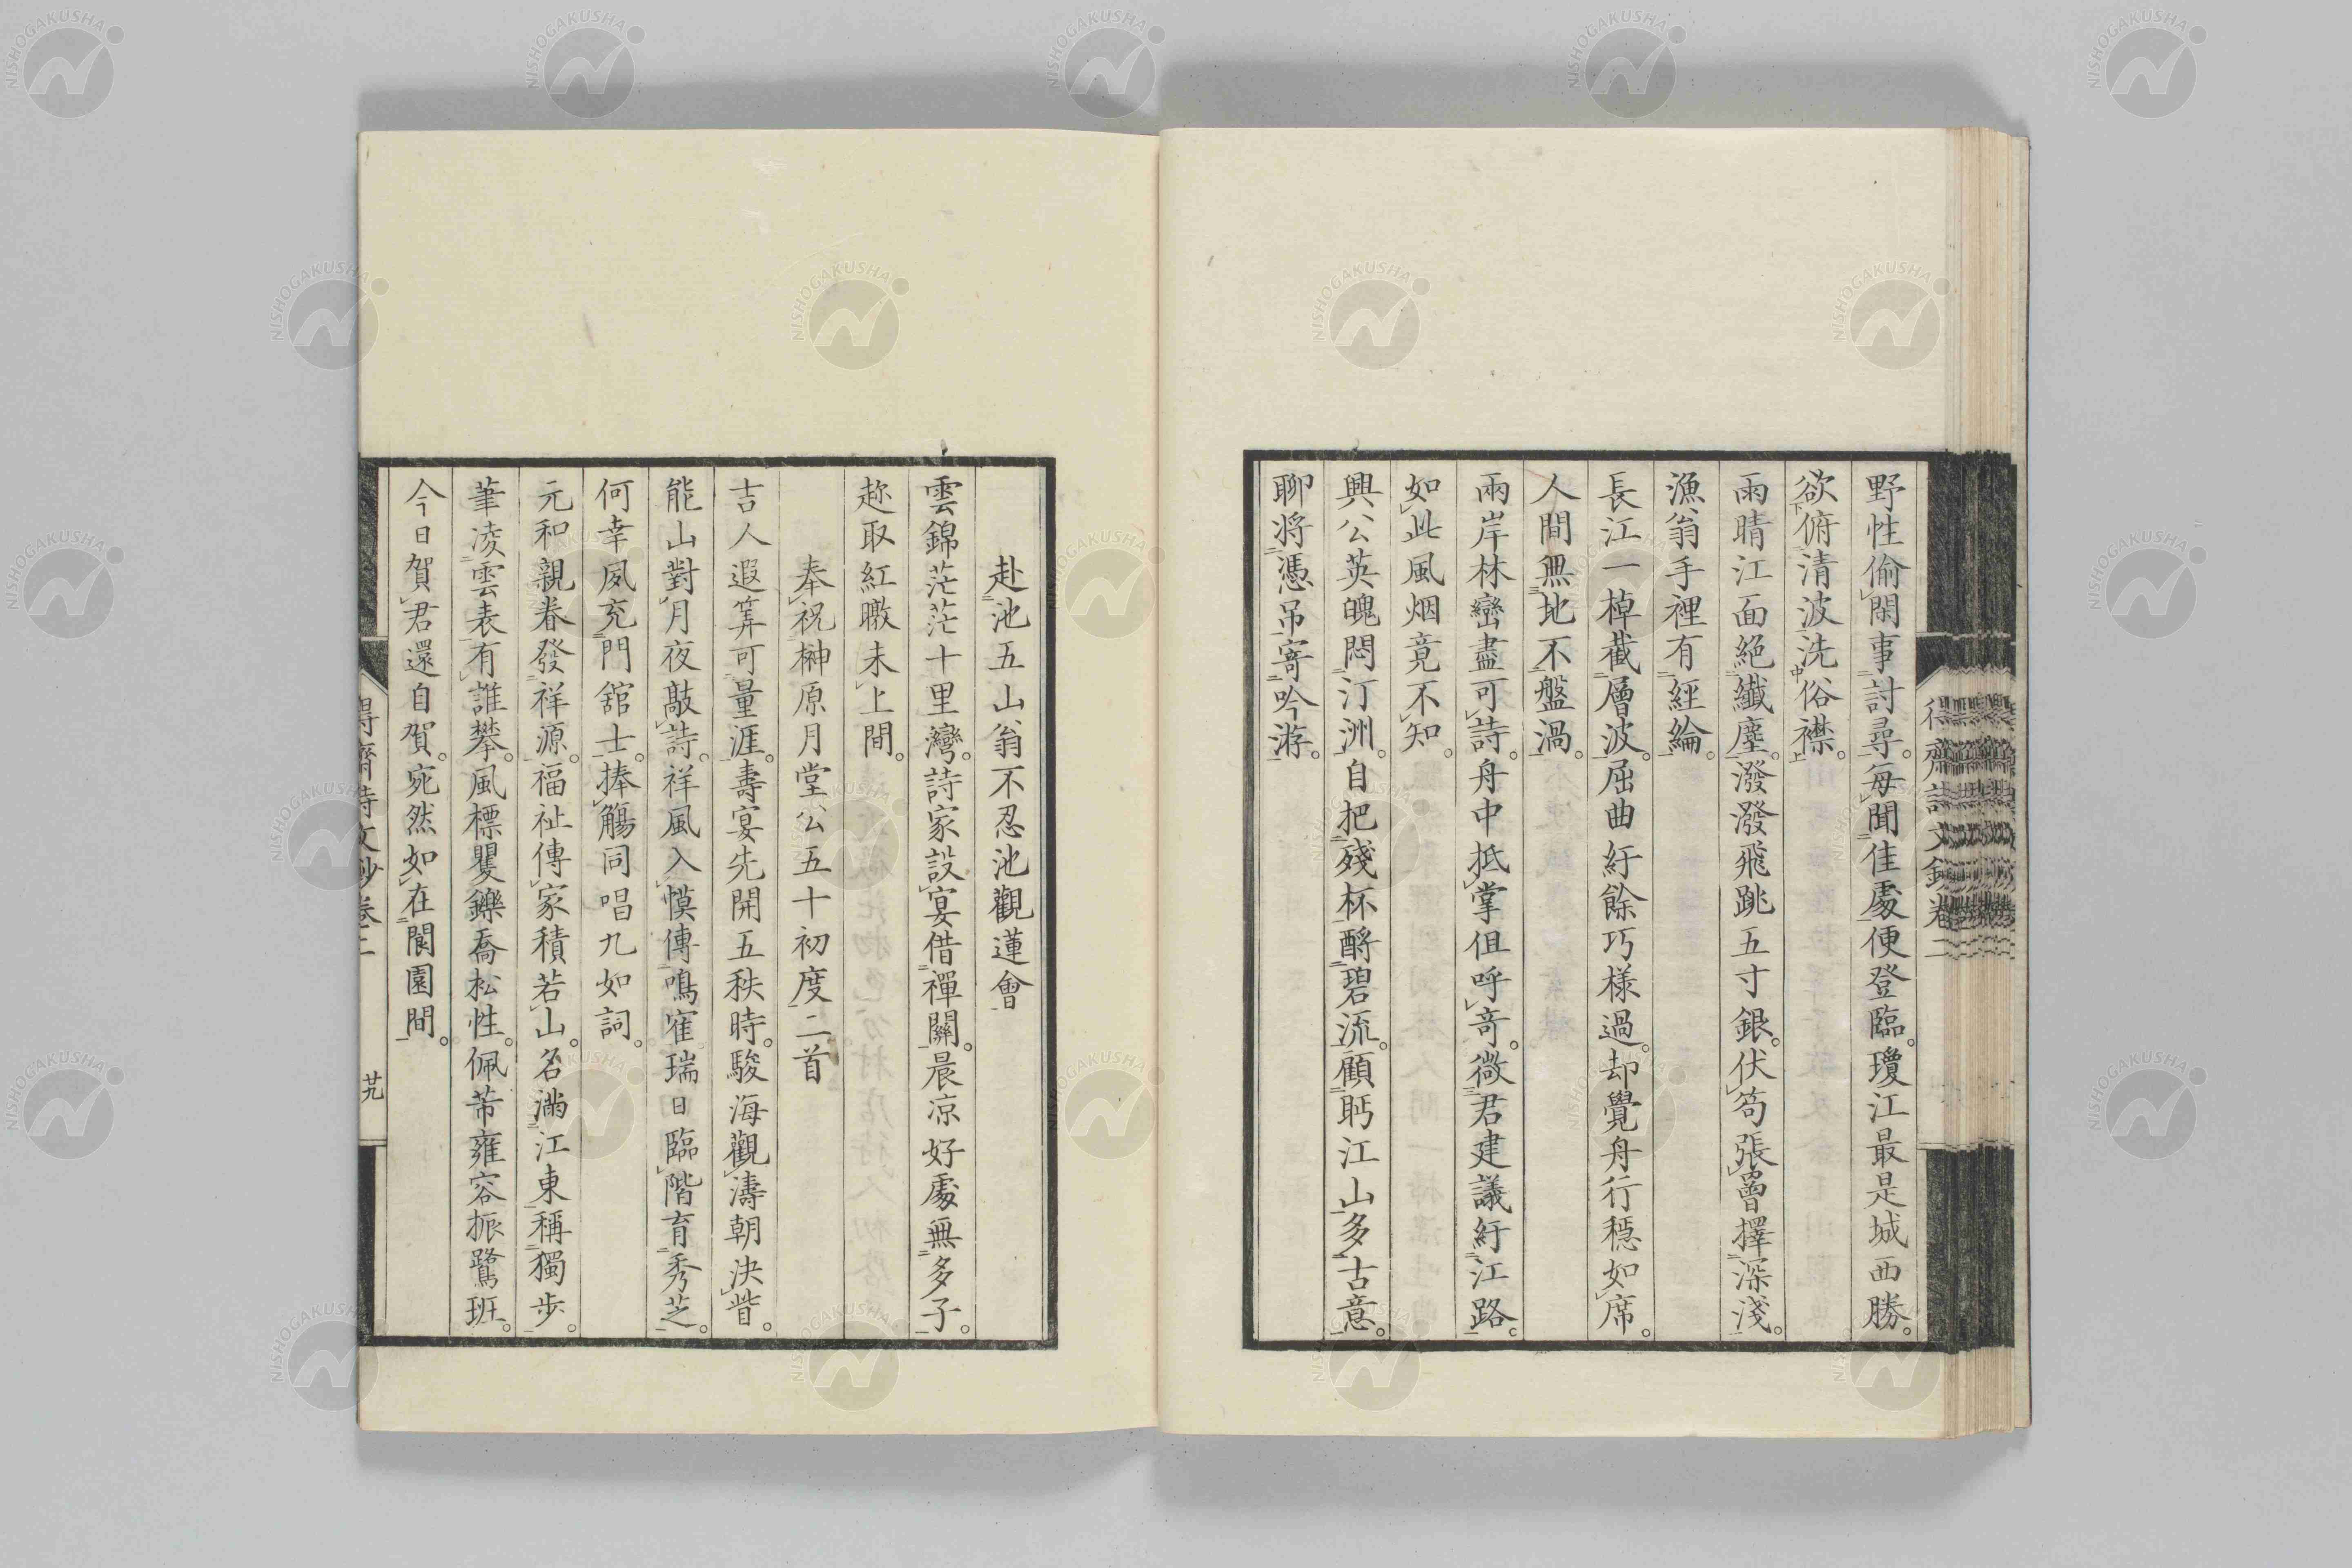 野性偷閑事討尋。每聞佳處便登臨。瓊江最是城西勝。
欲俯清波洗俗襟。
雨晴江面絕纖塵。潑潑飛跳五寸銀。伏笱張罾擇深淺。
漁翁手裡有經綸。
長江一棹截層波。屈曲紆餘巧樣過。却覺舟行穩如席。
人間無地不盤渦。
兩岸林巒盡可詩。舟中抵掌但呼奇。微君建議紆江路。
如此風烟竟不知。
興公英魄悶汀洲。自把殘杯酹碧流。顧眄江山多古意。
聊將憑吊寄吟游。
得齋詩文鈔卷二
赴池五山翁不忍池觀蓮會
雲錦茫茫十里灣。詩家設宴借禪關。晨凉好處無多子。
趂取紅暾未上間。
奉祝榊原月堂公五十初度二首
吉人遐筭可量涯。壽宴先開五秩時。駿海觀濤朝決眥。
能山對月夜敲詩。祥風入幙傳鳴寉。瑞日臨階育秀芝。
何幸夙充門舘士。捧觴同唱九如詞。
元和親眷發祥源。福祉傳家積若山。名滿江東稱獨步。
筆凌雲表有誰攀。風標矍鑠喬松性。佩芾雍容振鷺班。
今日賀君還自賀。宛然如在閬園間。
得齋詩文鈔卷二
廿九
NISHOGAKUSHA